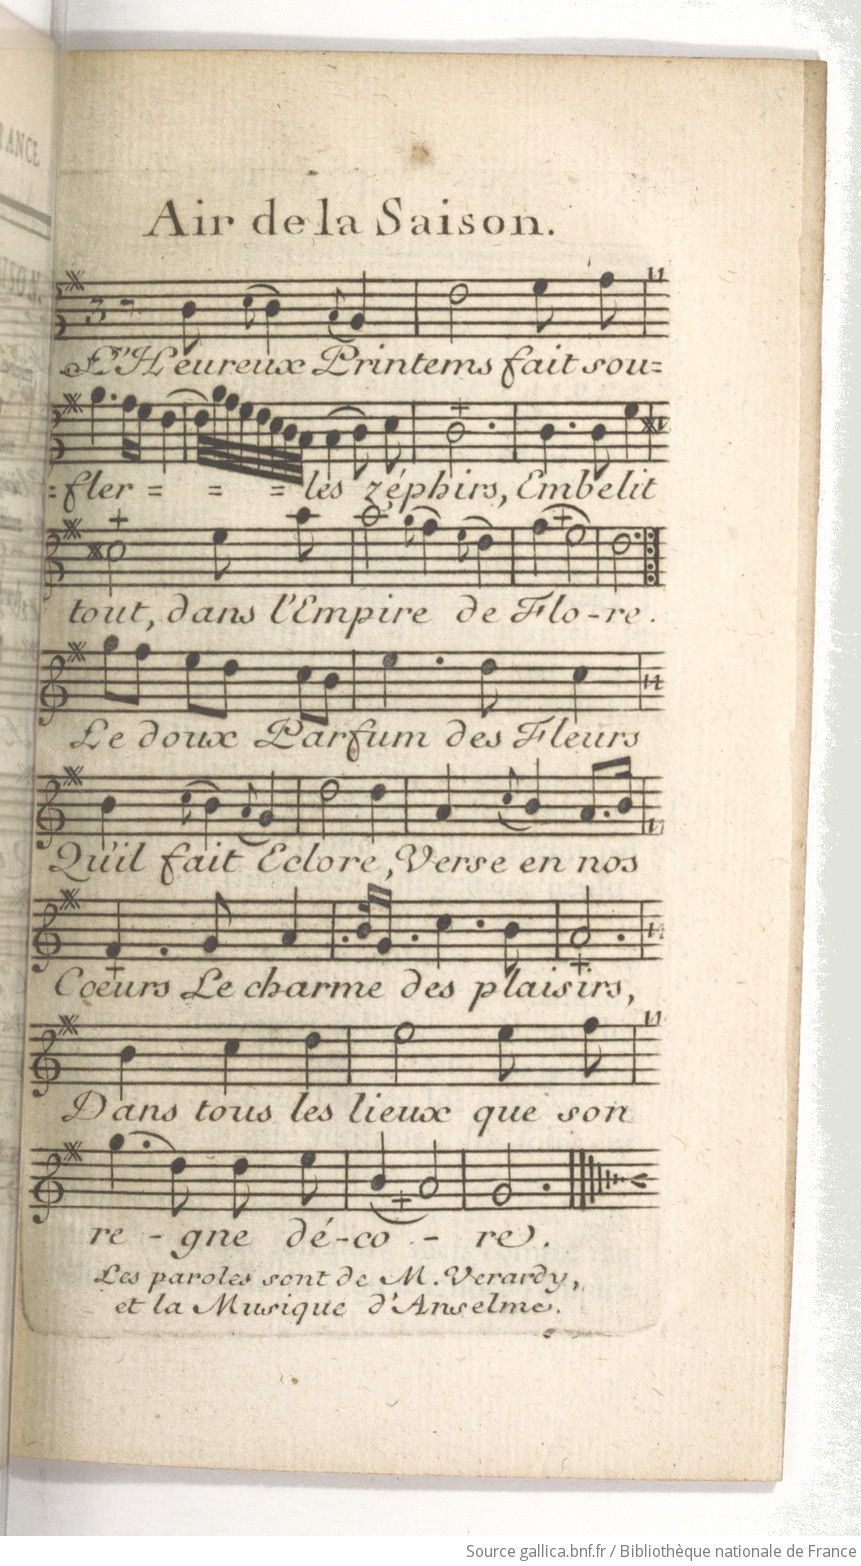 RANCE.
Air de la Saison.
3
L'Heureux Printems fait sou=
=fler = = = les zéphirs, Embelit
tout, dans l'Empire de Flo-re.
Le doux Parfum des Fleurs
Qu'il fait Eclore, Verse en nos
Coeurs Le charme des plaisirs,
Dans tous les lieux que son
re - gne dé-co - re.
Les paroles sont de M. Verardy,
et la Musique d'Anselme.
Source gallica.bnf.fr / Bibliothèque nationale de France